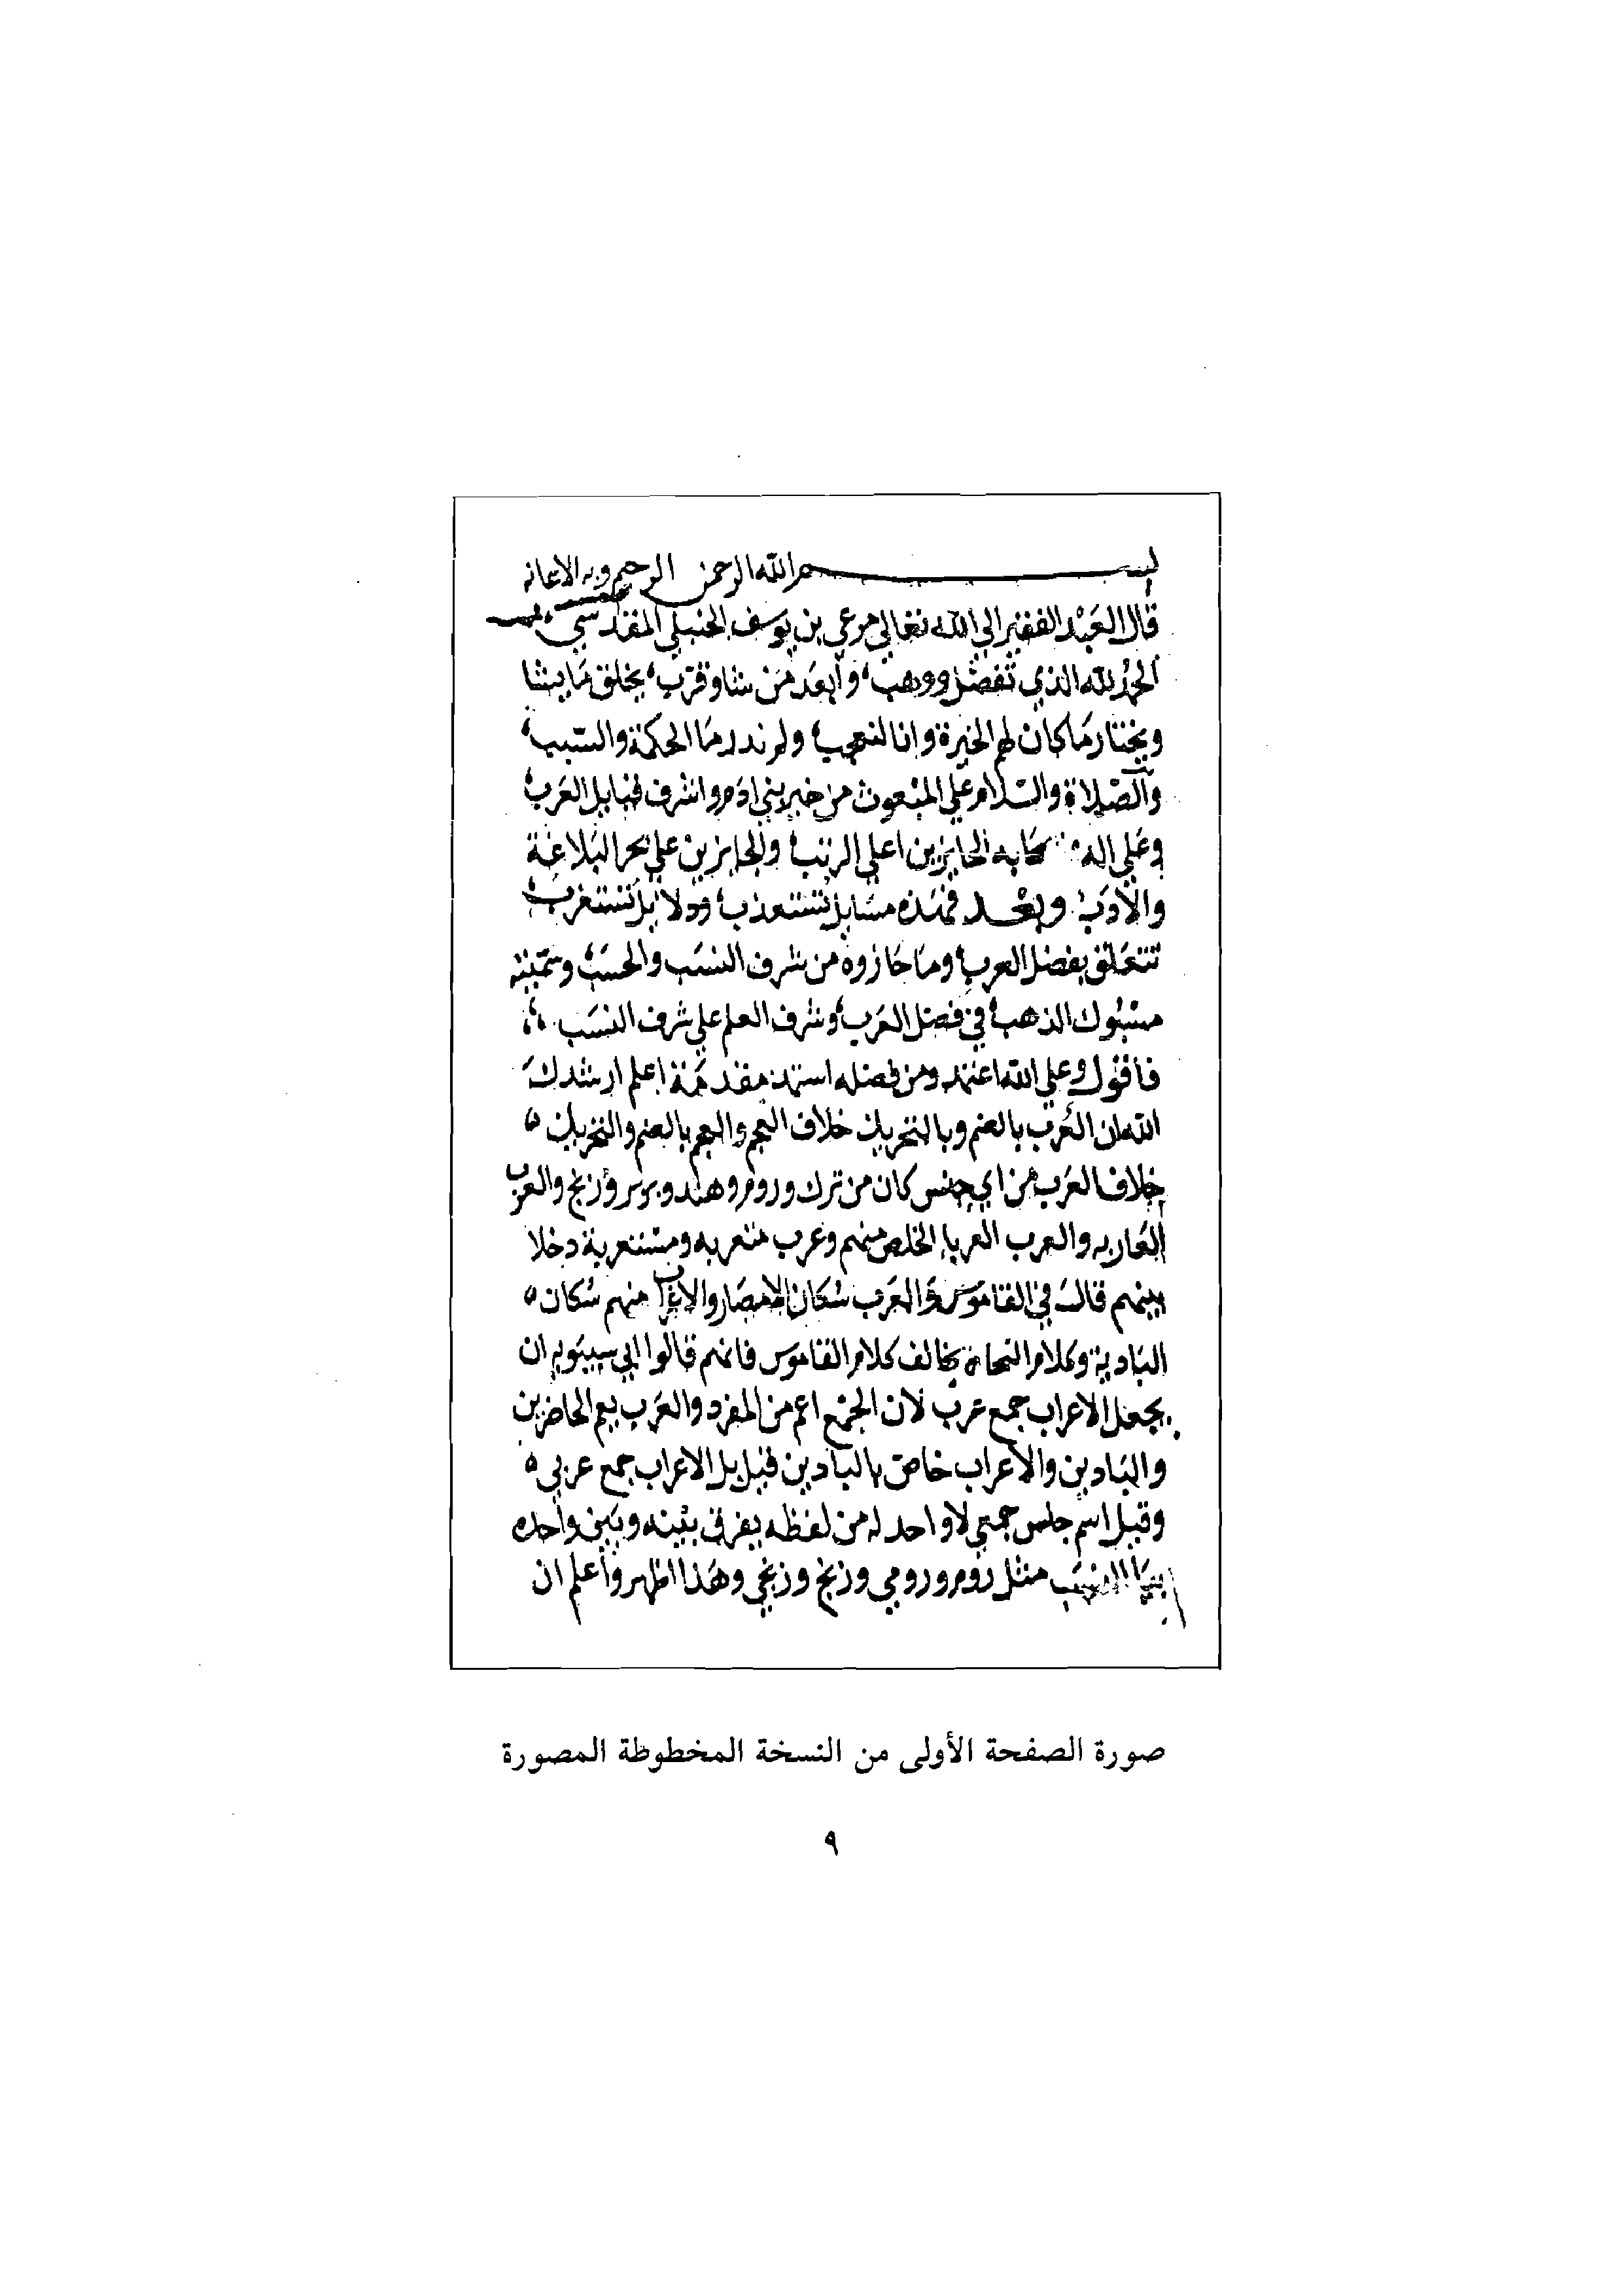 بسم الله الرحمن الرحيم وبه الاعانه
قال العبد الفقير الي الله تعالي مرعي بن يوسف الحنبلي المقدسي
الحمد لله الذي تفضل ووهب، وأبعد من شا وقرب، يخلق ما يشا
ويختار ما كان لهم الخيرة وانا لنعجب، ولم ندر ما الحكمة والسبب،
والصلاة والسلام علي المبعوث من خير بني ادم واشرف قبايل العرب،
وعلي اله الحايزين اعلي الرتب، والحايزين علي بحر البلاغة
والأدب، وبعد فهذه مسايل تستعذب، ودلايل تستغرب،
تتعلق بفضل العرب، وما حازوه من شرف النسب والحسب، وسميته
مسبوك الذهب، في فضل العرب، وشرف العلم علي شرف النسب،
فاقول وعلي الله اعتمد ومن فضله استمد مقدمة اعلم ارشدك
الله ان العرب بالضم وبالتحريك خلاف العجم والعجم بالضم والتحريك ه
خلاف العرب من اي جنس كان من ترك وروم وهند وبربر وزنج والعرب
العاربه والعرب العربا الخلص منهم وعرب متعربه ومستعربة دخلا
بينهم قال في القاموس والعرب سكان الامصار والاعراب منهم سكان ه
البادية وكلام النحاة يخالف كلام القاموس فانهم قالوا ابي سيبويه ان
يجعل الاعراب جمع عرب لان الجمع اعم من المفرد والعرب يعم الحاضرين
والبادين والاعراب خاص بالبادين قيل بل الاعراب جمع عربي ه
وقيل اسم جنس جمعي لا واحد له من لفظه يفرق بينه وبين واحده
بيا النسب مثل روم ورومي وزنج وزنجي وهذا اظهر واعلم ان
صورة الصفحة الأولى من النسخة المخطوطة المصورة
٩